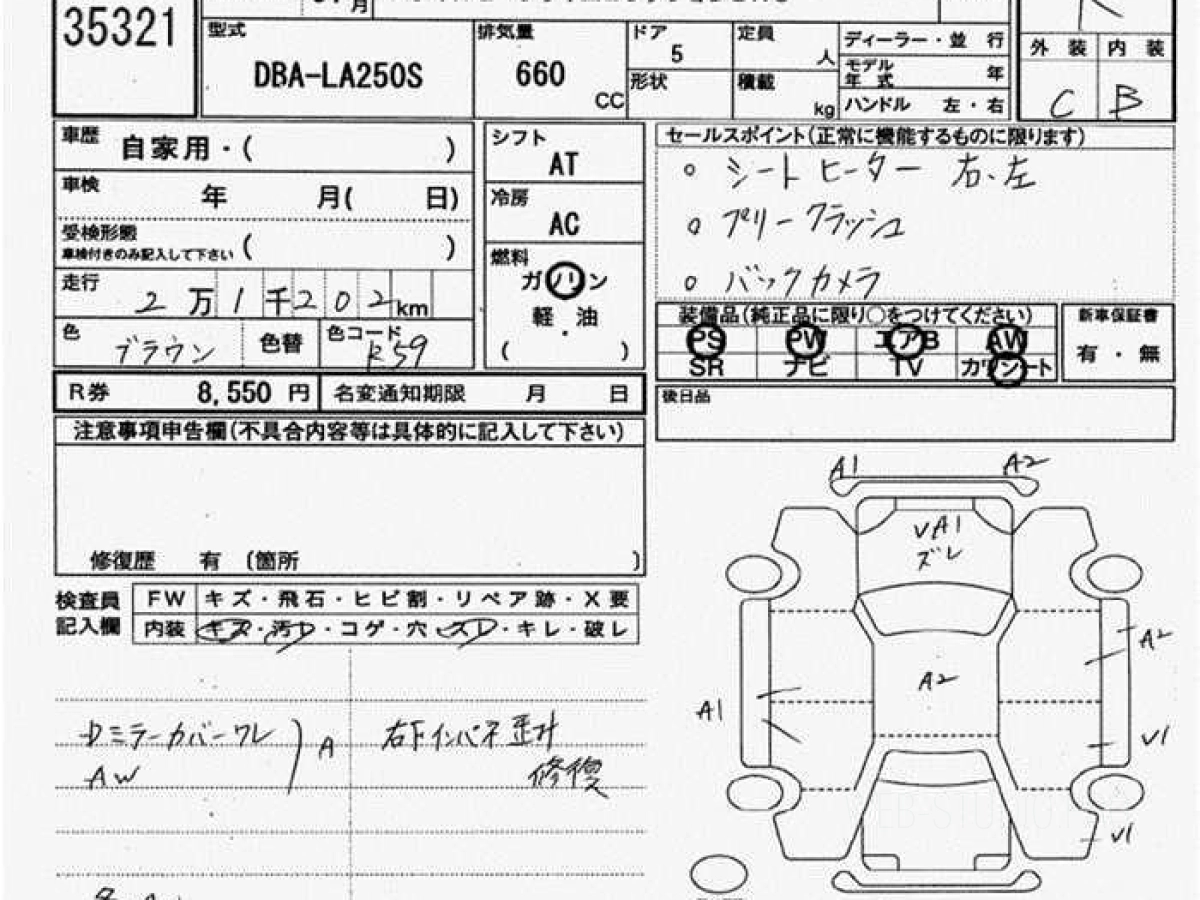 35321
月
型式 DBA-LA250S
排気量 660 CC
ドア 5
形状
定員 人
積載 kg
ディーラー・並 行
モデル年式 年
ハンドル 左・右
外 装 内 装
C B
車歴 自家用・( )
車検 年 月( 日)
受検形態 ( )
車検付きのみ記入して下さい
走行 2万1千202km
色 ブラウン 色替 色コード R59
シフト AT
冷房 AC
燃料 ガソリン
軽・油
( )
セールスポイント(正常に機能するものに限ります)
○ シートヒーター 右、左
○ プリークラッシュ
○ バックカメラ
装備品(純正品に限り○をつけてください)
PS PW エアB AW
SR ナビ TV カワシート
新車保証書
有・無
R券 8,550 円 名変通知期限 月 日
後日品
注意事項申告欄(不具合内容等は具体的に記入して下さい)
修復歴 有 〔箇所 〕
検査員記入欄
FW キズ・飛石・ヒビ割・リペア跡・X要
内装 キズ・汚レ・コゲ・穴・スレ・キレ・破レ
ミラーカバーワレ
AW
A
右下インパネ
修復
A1 A2
VA1
ズレ
A2
A2
A1
V1
V1